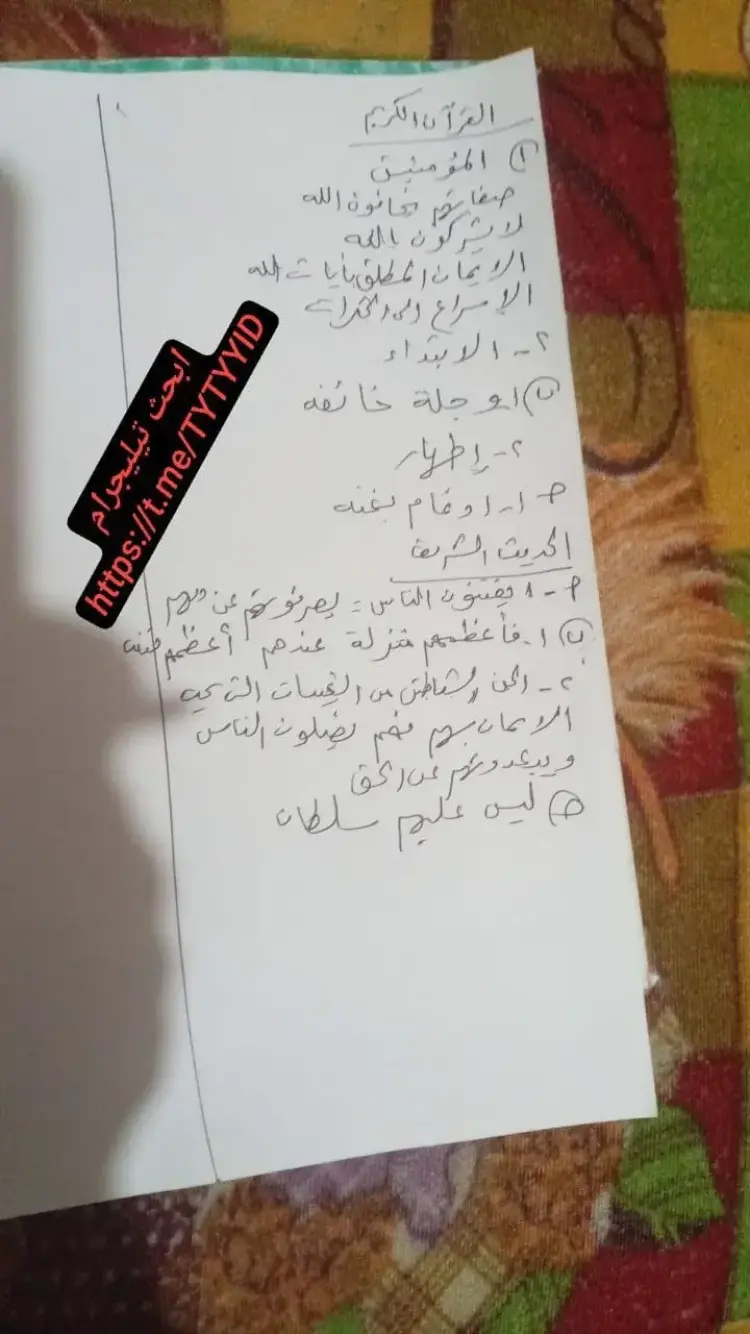 القرآن الكريم
١) المؤمنين
صفاتهم يخافون الله
لا يشركون بالله
الايمان المطلق بأيات الله
الإسراع الى الخيرات
٢- الابتداء
ب) ١- وجلة خائفه
٢- إظهار
ح- ١- ادغام بغنه
الحديث الشريف
٩- ١ يفتنون الناس = يصرفونهم عن دينهم
ب) ١- فأعظمهم منزلة عندهم أعظمهم فتنه
٢- الجن والشياطين من الغيبيات التي يجب
الايمان بهم فهم يضلون الناس
ويبعدونهم عن الحق
ح) ليس عليهم سلطان
ابحث تيليجرام
https://t.me/TYTYYID